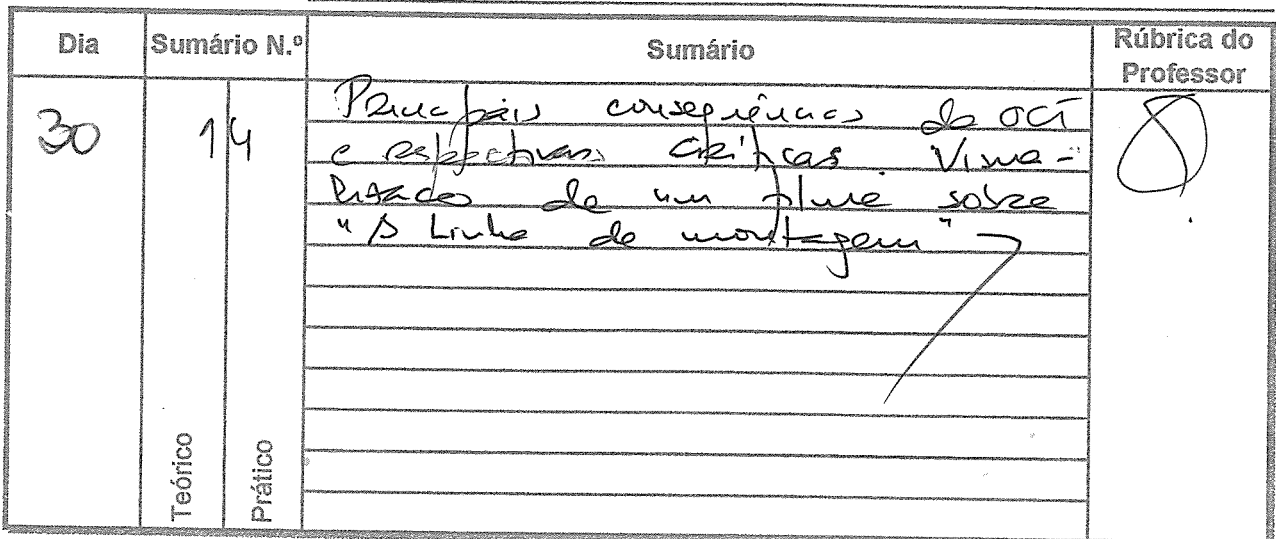 Dia Sumário N.º Sumário Rúbrica do Professor
30 14 Principais consequências da OCT
e respectivas críticas Visua-
lização de um filme sobre
"A Linha de montagem"
Teórico Prático